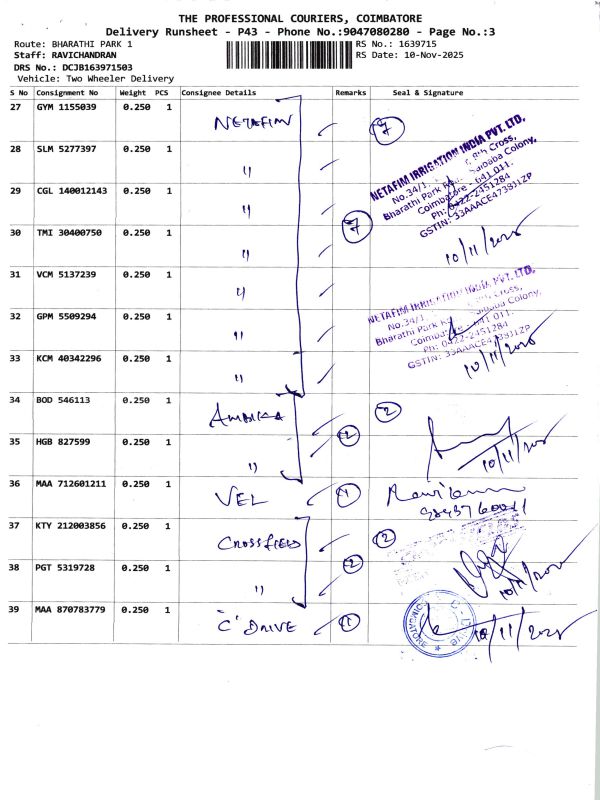 THE PROFESSIONAL COURIERS, COIMBATORE
Delivery Runsheet - P43 - Phone No.:9047080280 - Page No.:3
Route: BHARATHI PARK 1 RS No.: 1639715
Staff: RAVICHANDRAN RS Date: 10-Nov-2025
DRS No.: DCJB163971503
Vehicle: Two Wheeler Delivery
S No Consignment No Weight PCS Consignee Details Remarks Seal & Signature
27 GYM 1155039 0.250 1 NETAFIM 7
28 SLM 5277397 0.250 1 "
29 CGL 140012143 0.250 1 "
NETAFIM IRRIGATION INDIA PVT. LTD.
No.34/1, 8th Cross,
Bharathi Park Road, Saibaba Colony,
Coimbatore - 641 011.
Ph: 0422-2451284
GSTIN: 33AAACE4738J1ZP
30 TMI 30400750 0.250 1 " 7 10/11/2025
31 VCM 5137239 0.250 1 "
NETAFIM IRRIGATION INDIA PVT. LTD.
No.34/1, 8th Cross,
Bharathi Park Saibaba Colony,
Coimbatore - 641 011.
Ph: 0422-2451284
GSTIN: 33AAACE4738J1ZP
32 GPM 5509294 0.250 1 "
33 KCM 40342296 0.250 1 " 10/11/2025
34 BOD 546113 0.250 1 AMBIKA 2
35 HGB 827599 0.250 1 " 2 10/11/2025
36 MAA 712601211 0.250 1 VEL 1
37 KTY 212003856 0.250 1 CROSSFIELD 2
38 PGT 5319728 0.250 1 " 2 10/11/2025
39 MAA 870783779 0.250 1 "C" DRIVE 1 10/11/2025